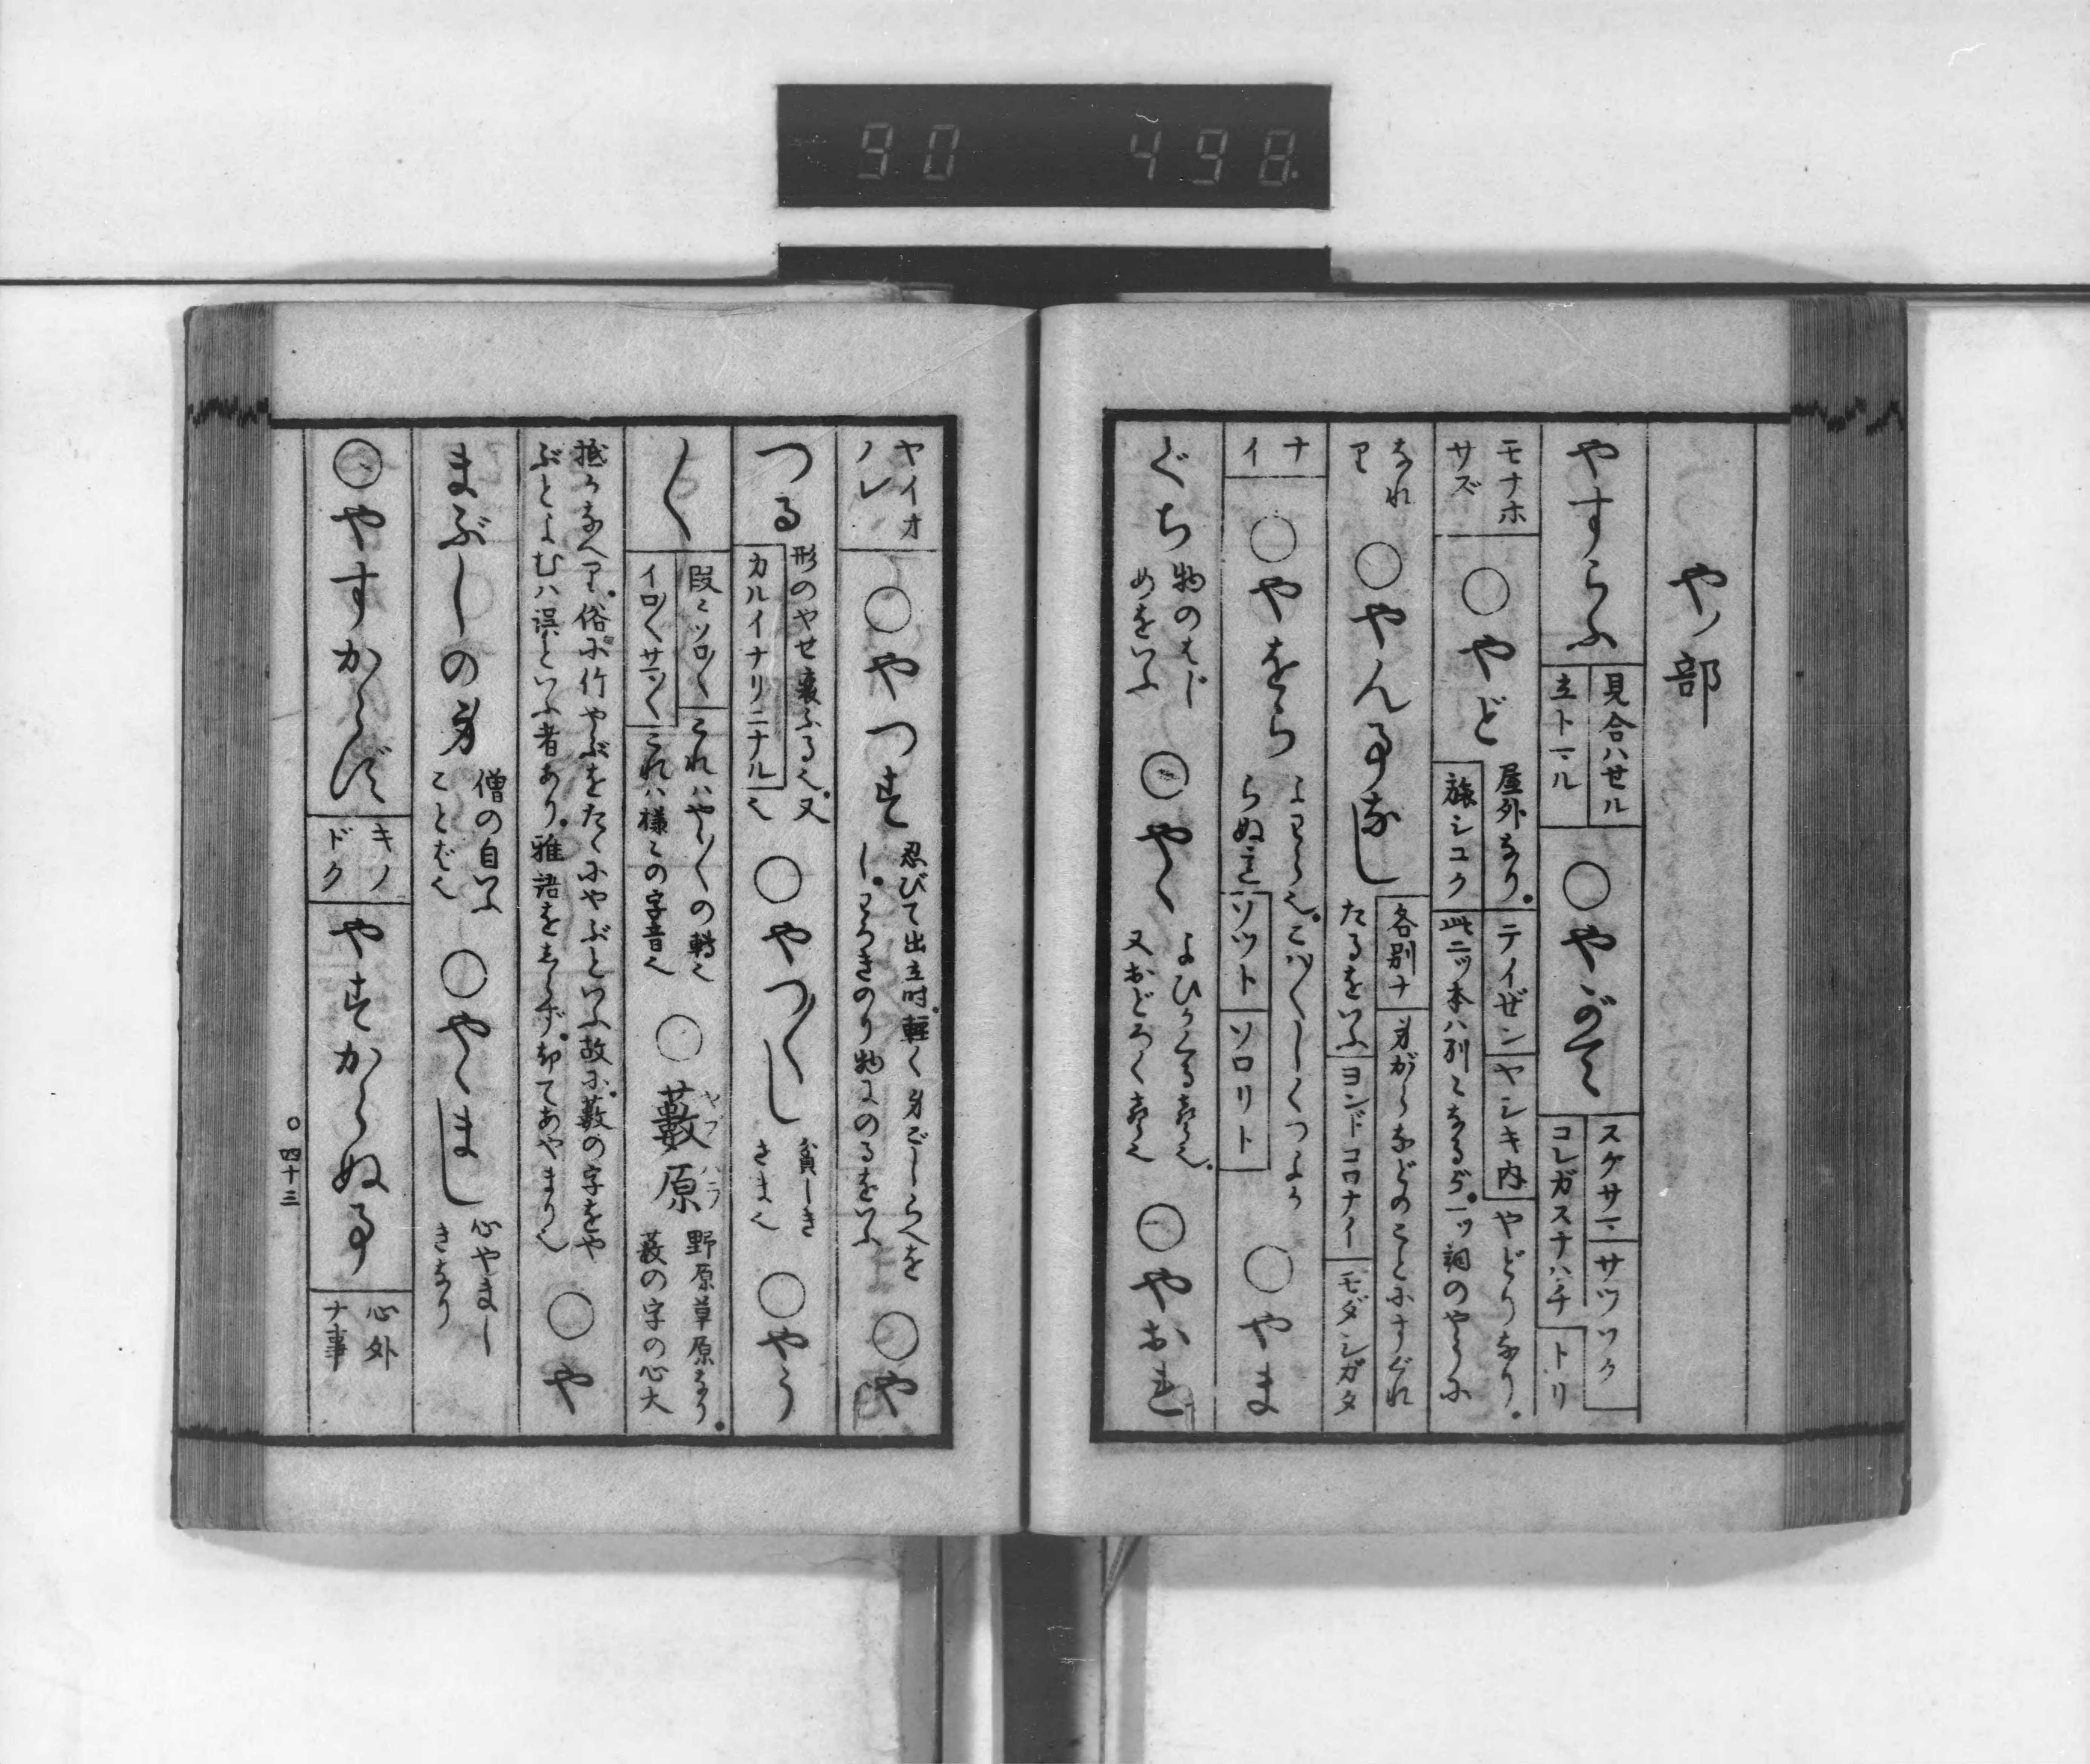 90 498
やノ部
やすらふ 見合ハセル 立トマル ○やがて スグサマ サツソク コレガスナハチ トリ
モナホサズ ○やど 屋外なり。テイゼン ヤシキ内 やどりなり。旅シユク 此二ツ本ハ別々なるが。一ツ詞のやうに
なれり ○やんごとなし 各別ナ 身がらなどのことにすぐれたるをいふ ヨンドコロナイ モダシガタ
ナイ ○やをら よわらぬ ソツト ソロリト ○やま
ぐち 物のはじめをいふ ○やく よびかくる声也。又おどろく声也 ○やおれ
ヤイオノレ ○やつす 忍びて出立時。軽く身ごしらへを のり物にのるをいふ ○や
つる 形のやせ衰ふる也。又 カルイナリニナル也 ○やつ〳〵し 貧しきさま也 ○やう
〳〵 段々ソロ〳〵 これハやう〳〵の転也 イロ〳〵サマ〴〵 これハ様々の字音也 ○藪原 ヤブハラ 野原草原なり。藪の字の心大
抵かなへり。俗に竹やぶをたゞにやぶといふ故に。藪の字をやぶとよむハ誤といふ者あり。雅語をしらず。却てあやまり也 ○や
まぶしの身 僧の自いふことば也 ○やくまし 心やましきなり
○やすからず キノドク やすからぬ事 心外ナ事
○四十三